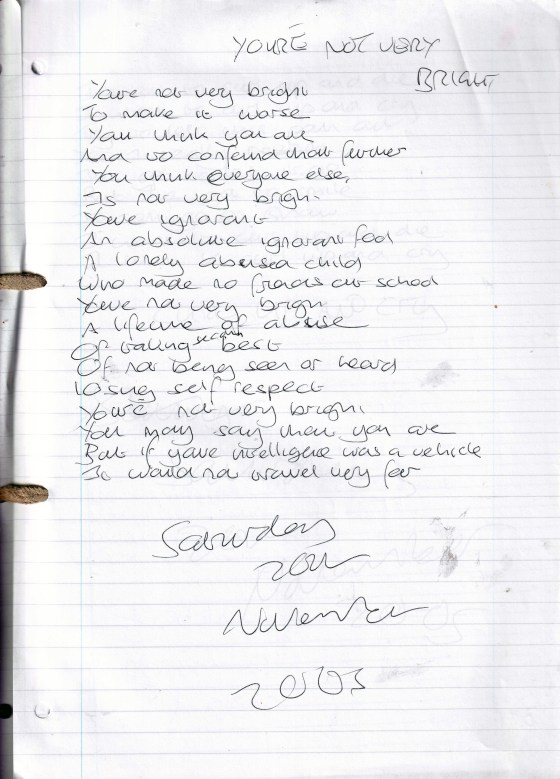 YOU'RE NOT VERY
BRIGHT
Youre not very bright
To make it worse
You think you are
And to confound that further
You think everyone else,
Is not very bright.
Youre ignorant
An absolute ignorant fool
A lonely abused child
Who made no friends at school
Youre not very bright
A lifetime of abuse
Of taking second best
Of not being seen or heard
losing self respect
You're not very bright.
You may say that you are
But if your intelligence was a vehicle
It would not travel very far
Saturday
November